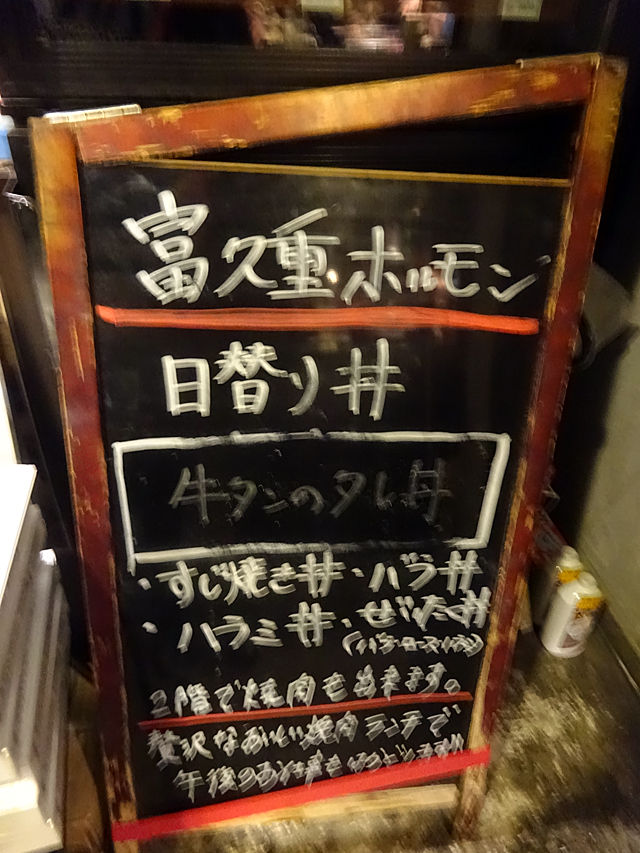 富久重ホルモン
日替り丼
牛タンのタレ丼
・すじ焼き丼・バラ丼
・ハラミ丼・ぜいたく丼
(バラ・ロース・ハラミ)
2階で焼肉も出来ます。
贅沢なおいしい焼肉ランチで
午後のお仕事も